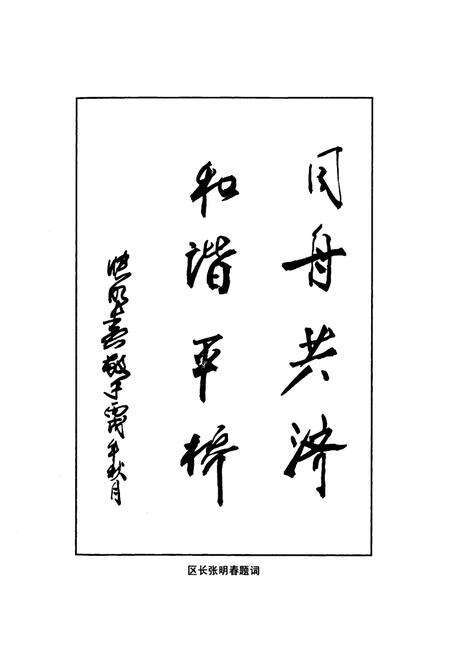 同舟共济
和谐平桥
张明春敬于丙戌年秋月
区长张明春题词